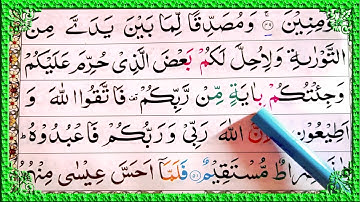 ؤْمِنِيْنَ ﴿۴۹﴾ وَمُصَدِّقًا لِّمَا بَيْنَ يَدَيَّ مِنَ
التَّوْرٰىةِ وَلِاُحِلَّ لَكُمْ بَعْضَ الَّذِيْ حُرِّمَ عَلَيْكُمْ
وَجِئْتُكُمْ بِاٰيَةٍ مِّنْ رَّبِّكُمْ فَاتَّقُوا اللّٰهَ وَ
اَطِيْعُوْنِ اِنَّ اللّٰهَ رَبِّيْ وَرَبُّكُمْ فَاعْبُدُوْهُ
صِرَاطٌ مُّسْتَقِيْمٌ ﴿۵۱﴾ فَلَمَّاۤ اَحَسَّ عِيْسٰى مِنْهُ